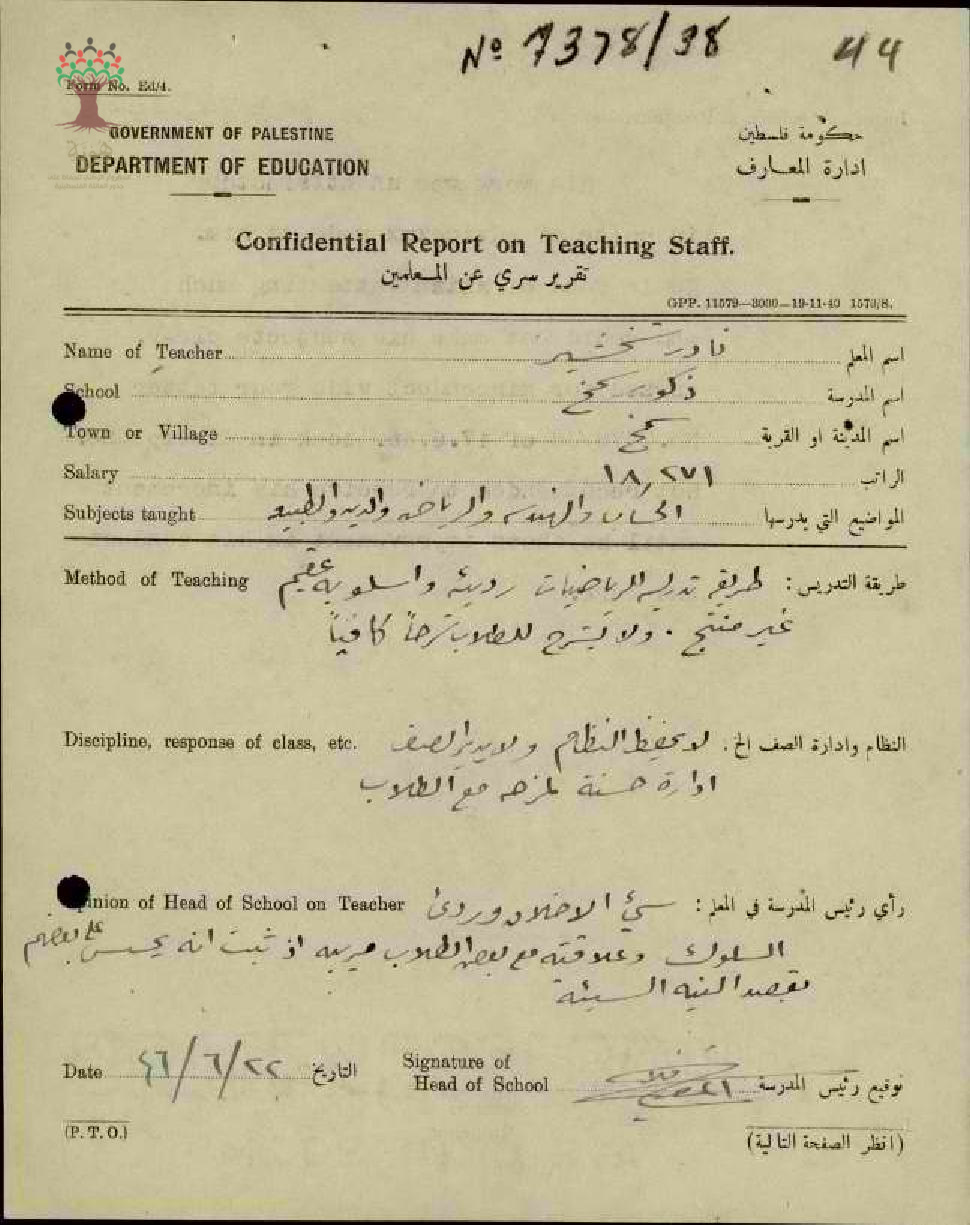 Nº 7378/38 44
Form No. Ed/4.
GOVERNMENT OF PALESTINE حكومة فلسطين
DEPARTMENT OF EDUCATION ادارة المعارف
Confidential Report on Teaching Staff.
تقرير سري عن المعلمين
GPP. 11579—3000—19-11-40 1573/8.
Name of Teacher اسم المعلم
School ذكور اسم المدرسة
Town or Village اسم المدينة او القرية
Salary ١٨,٢٧١ الراتب
Subjects taught الحساب والهندسه والرياضه والدين والطبيعه المواضيع التي يدرسها
Method of Teaching طريقة التدريس: طريقة تدريس الرياضيات رديئة واسلوبه عقيم
غير منتج . ولا يشرح للطلاب شرحاً كافياً
Discipline, response of class, etc. النظام وادارة الصف الخ. لا يحفظ النظام ولا يدير الصف
ادارة حسنة لمزحه مع الطلاب
Opinion of Head of School on Teacher رأي رئيس المدرسة في المعلم: سيّ الاخلاق وردئ
السلوك وعلاقته مع بعض الطلاب مريبه اذ ثبت انه على بعضهم
بقصد النيه السيئة
Date ٤٦/٦/٢٢ التاريخ Signature of Head of School توقيع رئيس المدرسة
(P. T. O.) (انظر الصفحة التالية)